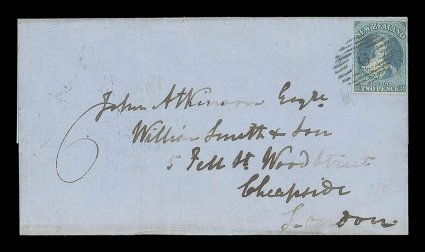 NEW ZEALAND
TWO PENCE
6
John Atkinson Esqre
William Smith & Son
5 Fell St. Wood Street
Cheapside
London